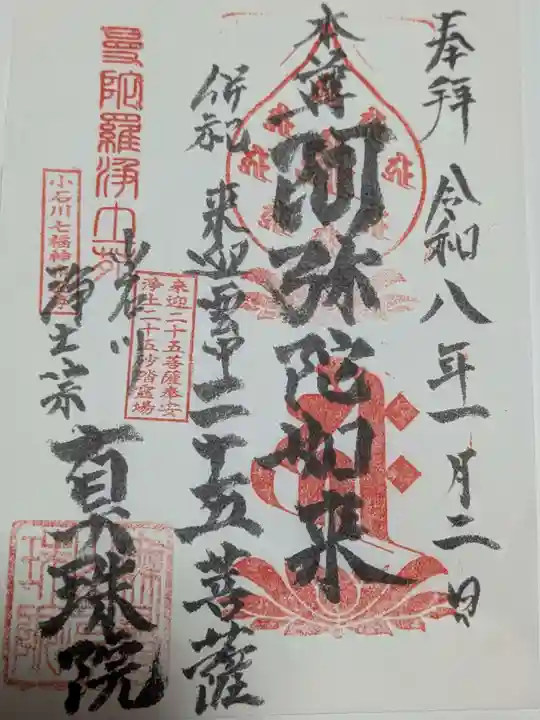 奉拝 令和八年一月二日
本尊 阿弥陀如来
併祀 来迎雲中二十五菩薩
来迎二十五菩薩奉安
浄土二十五妙踏霊場
小石川
浄土宗 真珠院
曼陀羅浄土苑
小石川七福神